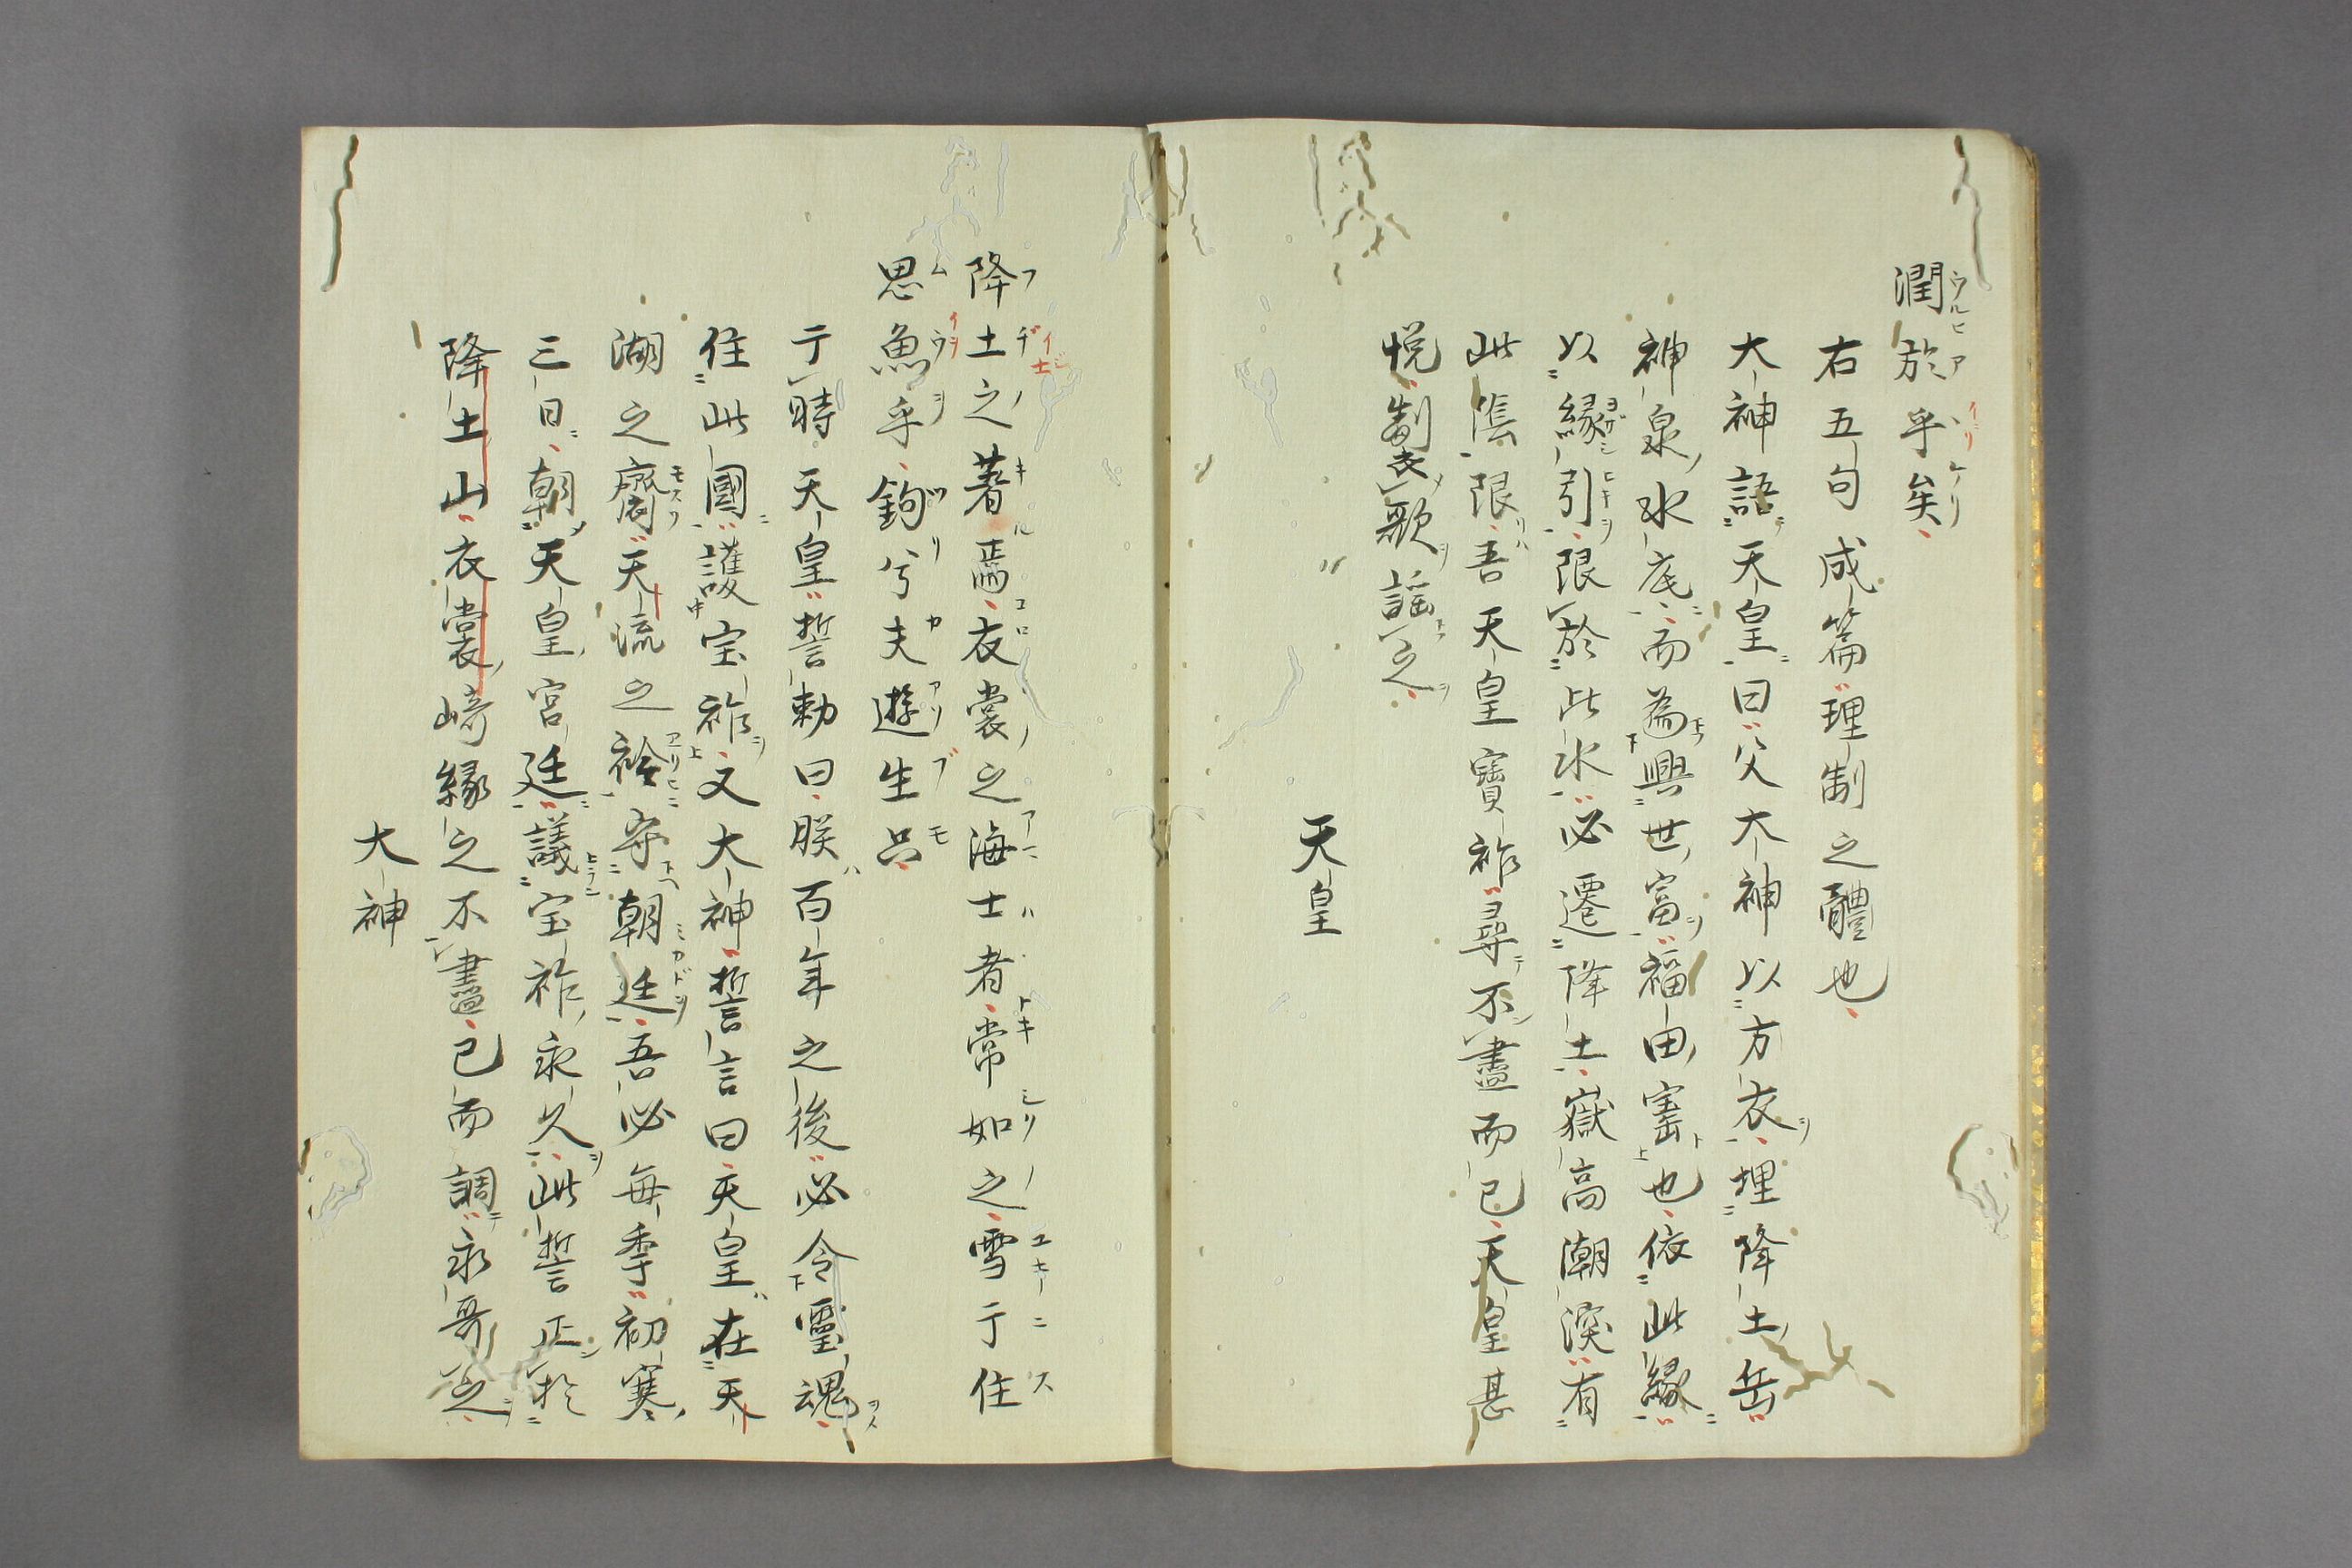 潤於乎矣
右五句成篇理制之醴也
大神語天皇曰父大神以方衣埋降土岳
神泉水底而為興世富福田富也依此縁
以縁引限於此水必遷降土嶽高潮深有
此陰限吾天皇寶祚尋不盡而已天皇甚
悦製歌謡之
天皇
降土之著焉衣裳之海士者常如之雪于住
思魚乎鉤兮夫遊生呂
于時天皇誓勅曰朕百年之後必令靈魂
住此國護宝祚又大神誓言曰天皇在天
湖之齋天流之裕守朝廷吾必毎季初寒
三日朝天皇宮廷議宝祚永久此誓正於
降土山衣裳崎縁之不盡已而調永哥之
大神